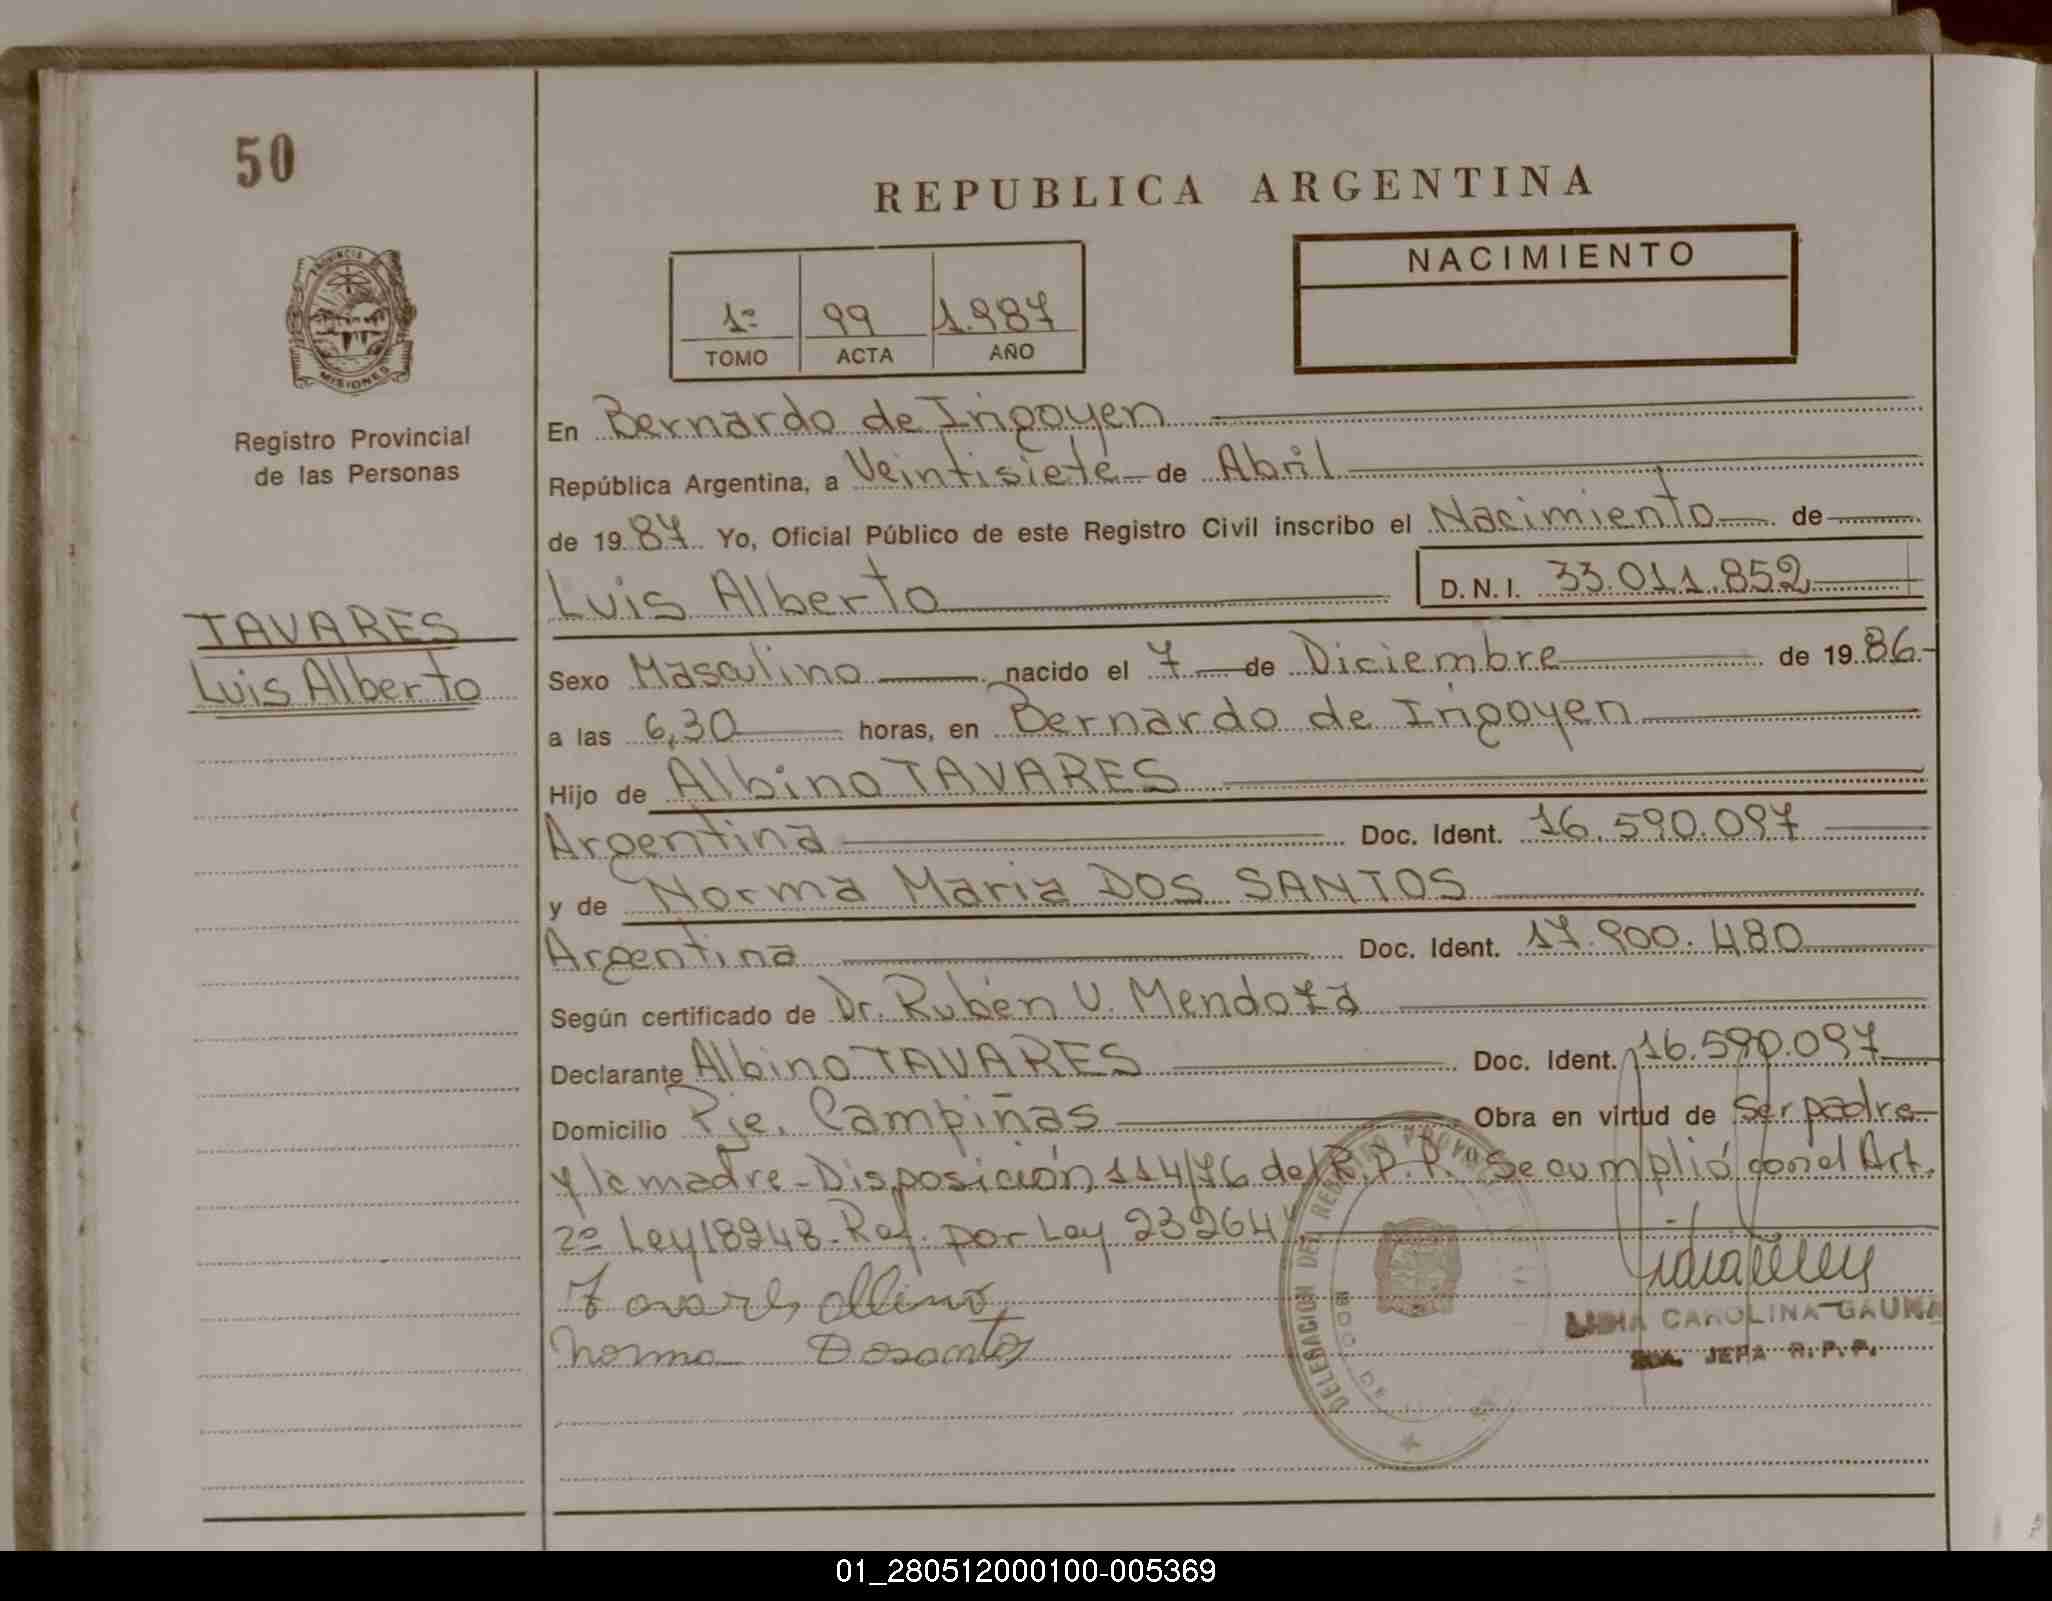 50
REPUBLICA ARGENTINA
NACIMIENTO
1º 99 1.987
TOMO ACTA AÑO
PROVINCIA DE
MISIONES
Registro Provincial
de las Personas
TAVARES
Luis Alberto
En Bernardo de Irigoyen
República Argentina, a Veintisiete de Abril
de 1987 Yo, Oficial Público de este Registro Civil inscribo el Nacimiento de
Luis Alberto D.N.I. 33.011.852
Sexo Masculino nacido el 7 de Diciembre de 1986.-
a las 6,30 horas, en Bernardo de Irigoyen
Hijo de Albino TAVARES
Argentina Doc. Ident. 16.590.097
y de Norma Maria DOS SANTOS
Argentina Doc. Ident. 17.900.480
Según certificado de Dr. Rubén V. Mendoza
Declarante Albino TAVARES Doc. Ident. 16.590.097
Domicilio Pje. Campiñas Obra en virtud de ser padre
y la madre - Disposición 114/76 del R.P.P. Se cumplió con el Art.
2º Ley 18248 - Ref. por Ley 23264
Tavares Albino
Norma Dosantos
DELEGACION DEL REGISTRO PROVINCIAL
LIDIA CAROLINA GAUNA
JEFA R.P.P.
01_280512000100-005369